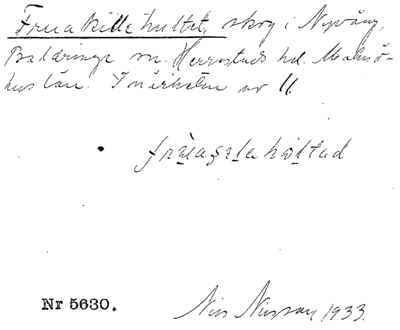 Fruakillehultet, skog i Nyvång,
Baldringe sn. Herrestads hd. Malmö-
hus län. I närheten av 11.
fruagilahöltad
Nr 5630.
Nils Nilsson 1933.